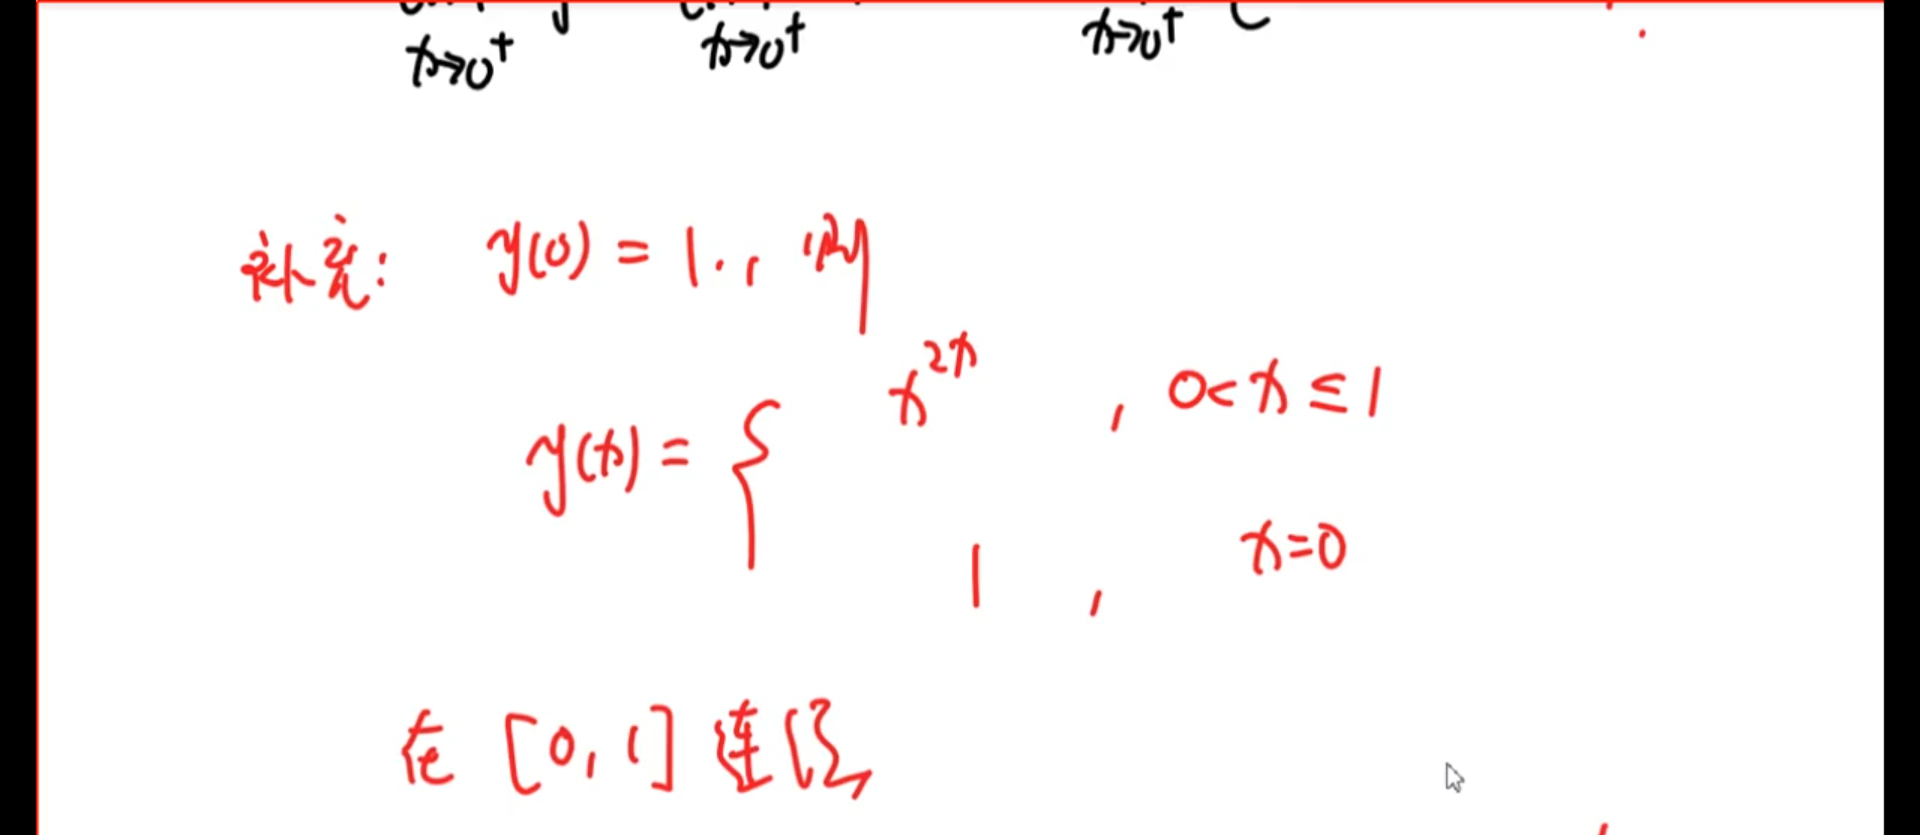 x→0⁺ x→0⁺ x→0⁺
补充: y(0) = 1., 则
y(x) = { x^{2x} , 0< x ≤ 1
1 , x=0
在 [0,1] 连续